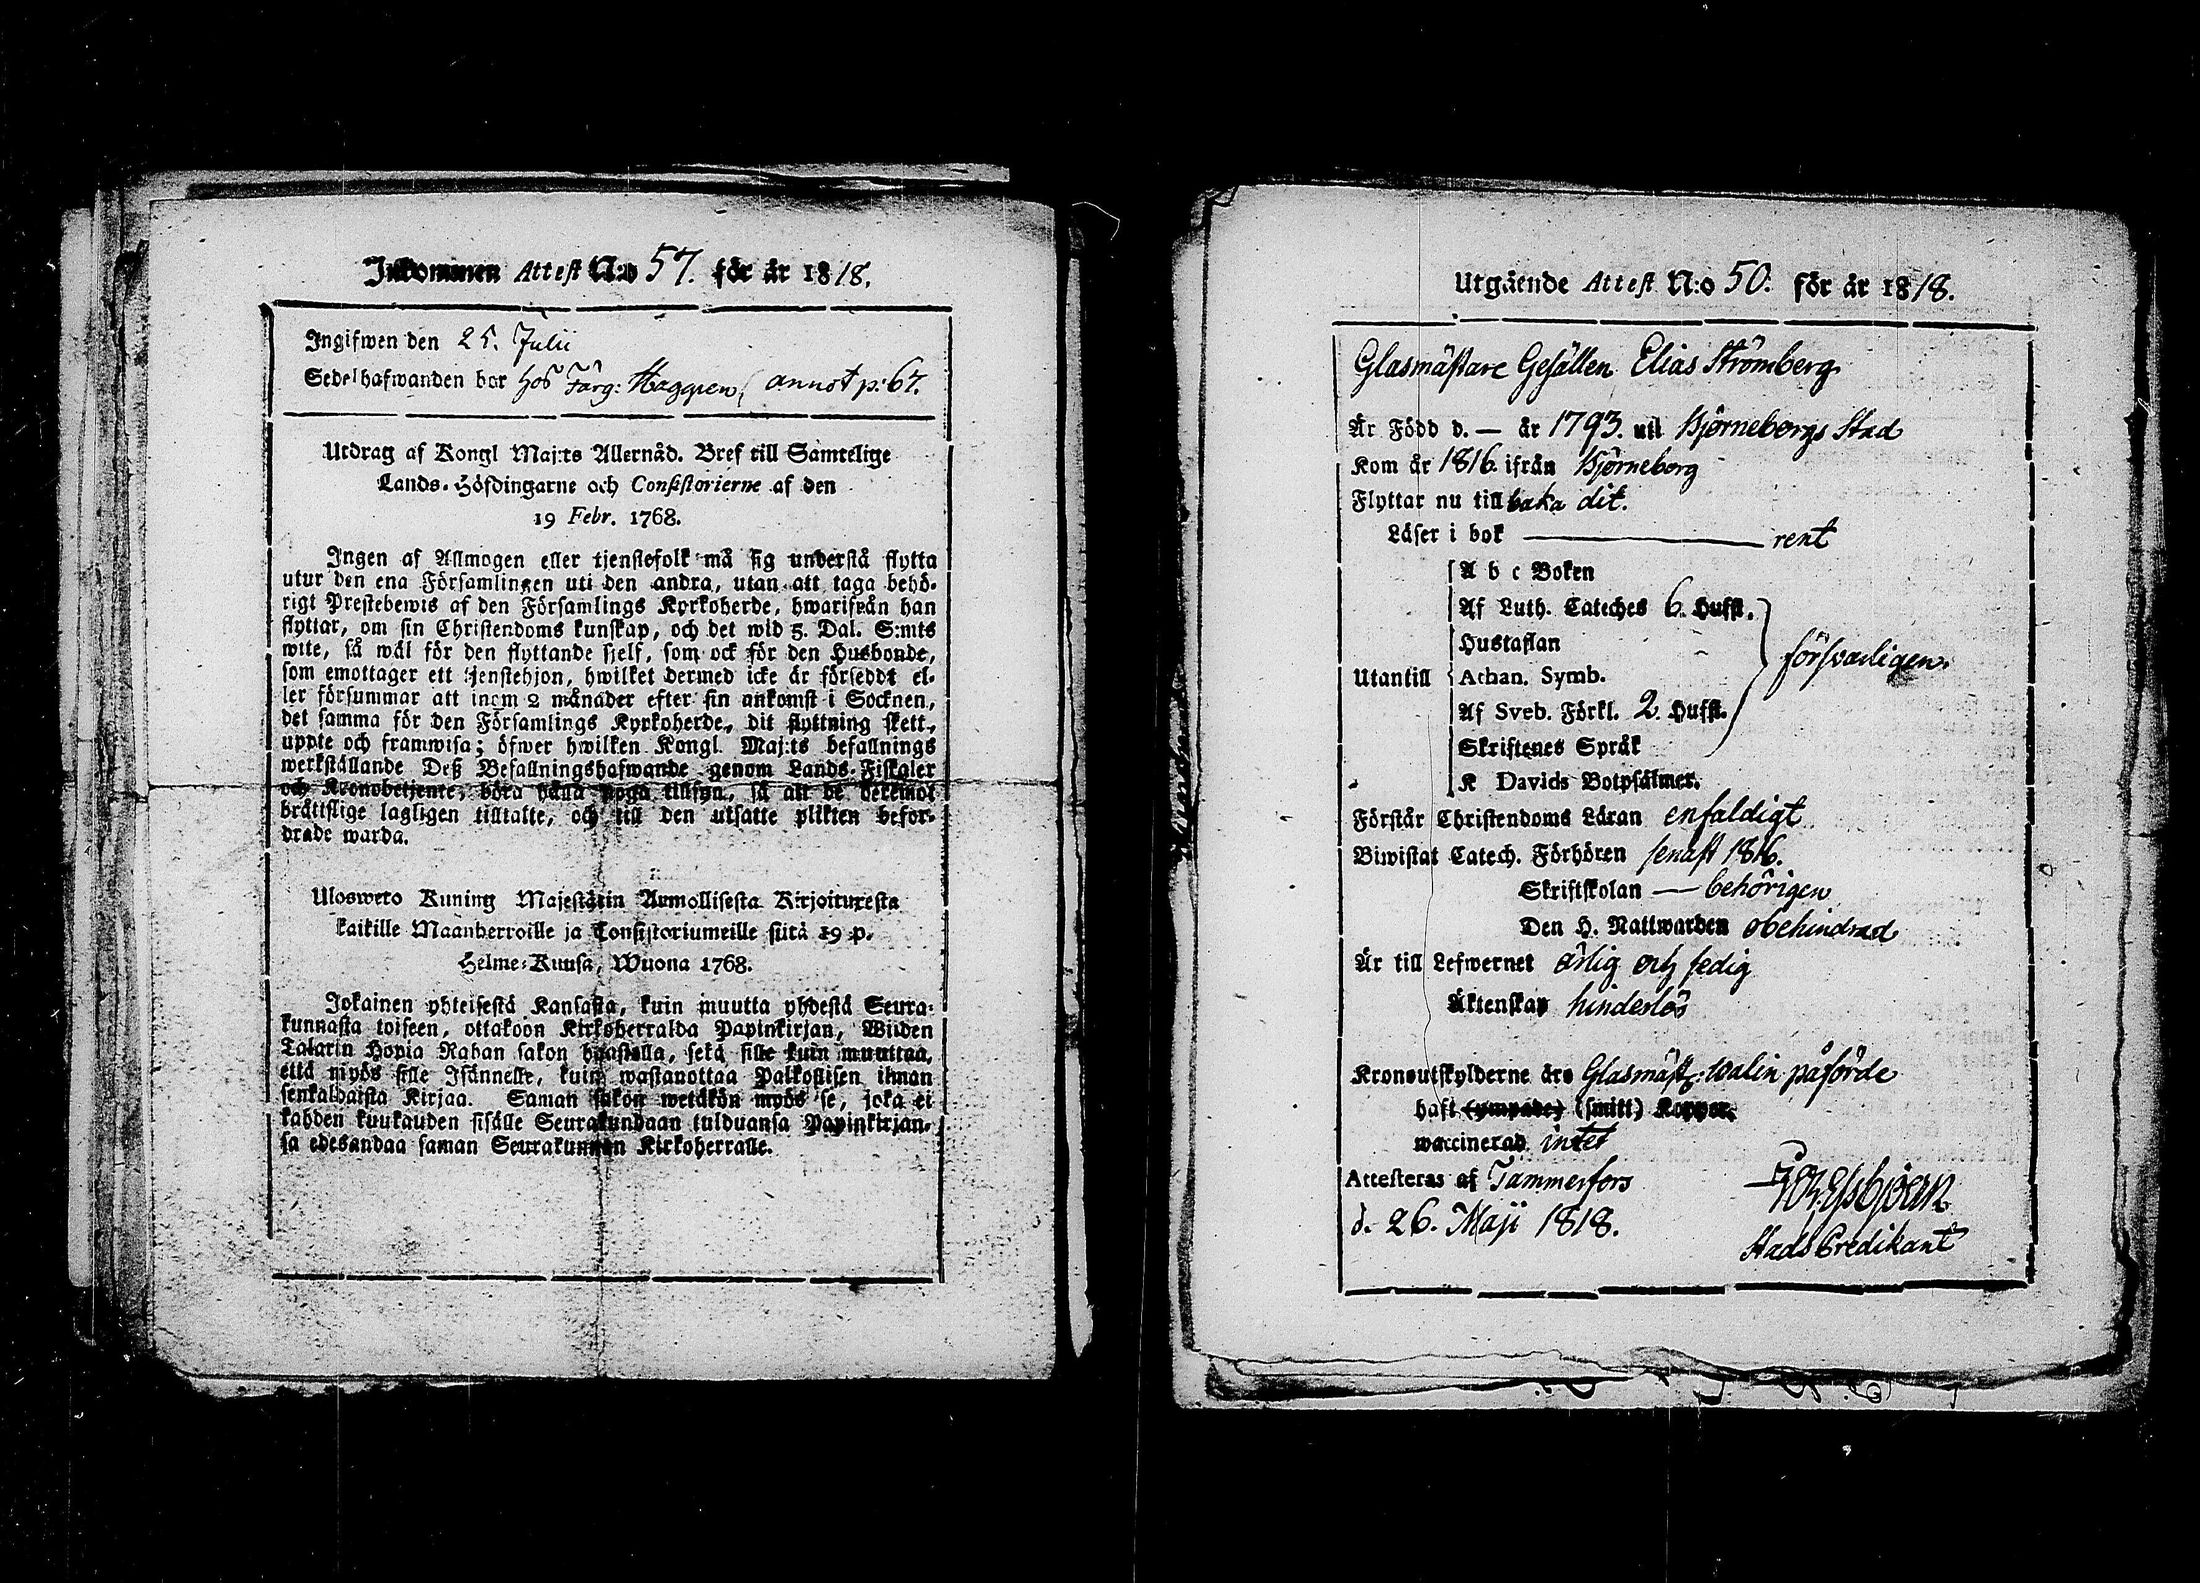 Inkommen Attest N:o 57. för år 1818.
Ingifwen den 25. Julii
Sedelhafwanden bor hos Färg: Haggren, annot p: 67.
Utdrag af Kongl Maj:ts Allernåd. Bref till Samtelige
Lands-Höfdingarne och Consistorierne af den
19 Febr. 1768.
Ingen af Allmogen eller tjenstefolk må sig understå flytta
utur den ena Församlingen uti den andra, utan att taga behö-
rigt Prestebewis af den Församlings Kyrkoherde, hwarifrån han
flyttar, om sin Christendoms kunskap, och det wid 5. Dal. S:mts
wite, så wäl för den flyttande sjelf, som ock för den Husbonde,
som emottager ett tjenstehjon, hwilket dermed icke är försedt el-
ler försummar att inom 2 månader efter sin ankomst i Socknen,
det samma för den Församlings Kyrkoherde, dit flyttning skett,
uppte och framwisa; öfwer hwilken Kongl. Maj:ts befallnings
werkställande Deß Befallningshafwande genom Lands-Fiskaler
och Kronobetjente, böra hålla noga tillsyn, så att de
brättslige lagligen tilltalte, och till den utsatte plikten befor-
drade warda.
Ulosweto Kuning Majestätin Armollisesta Kirjoituxesta
kaikille Maanherroille ja Consistoriumeille siitä 19 p.
Helme-Kuusa, Wuona 1768.
Jokainen yhteisestä Kansasta, kuin muutta yhdestä Seura-
kunnasta toiseen, ottakoon Kirkoherralda Papinkirjan, Wiiden
Talarin Hopia Rahan sakon haastolla, sekä sille kuin muuttaa,
että myös sille Isännelle, kuin wastanottaa Palkollisen ilman
senkalhaista Kirjaa. Saman sakon wetäkön myös se, joka ei
kahden kuukauden sisälle Seurakundaan tulduansa Papinkirjan-
sa edesandaa saman Seurakunnan Kirkoherralle.
Utgående Attest N:o 50. för år 1818.
Glasmästare Gesällen Elias Strömberg
Är Född d. — år 1793. uti Björneborgs Stad
Kom år 1816. ifrån Björneborg
Flyttar nu tillbaka dit.
Läser i bok — rent
A b c Boken
Af Luth. Cateches 6. Hufst.
Hustaflan
försvarligen.
Utantill Athan. Symb.
Af Sveb. Förkl. 2. Hufst.
Skriftenes Språk
K Davids Botpsalmer.
Förstår Christendoms Läran enfaldigt
Biwistat Catech. Förhören senast 1816.
Skriftskolan — behörigen
Den H. Nattwarden obehindrad
Är till Lefwernet ärlig och sedig
Äktenskap hinderlös
Kronoutskylderne äro Glasmäst: Walin påförde
haft (ympade) (smitt) Koppor.
waccinerad intet
Attesteras af Tammerfors
d. 26. Maji 1818.
Stads Predikant